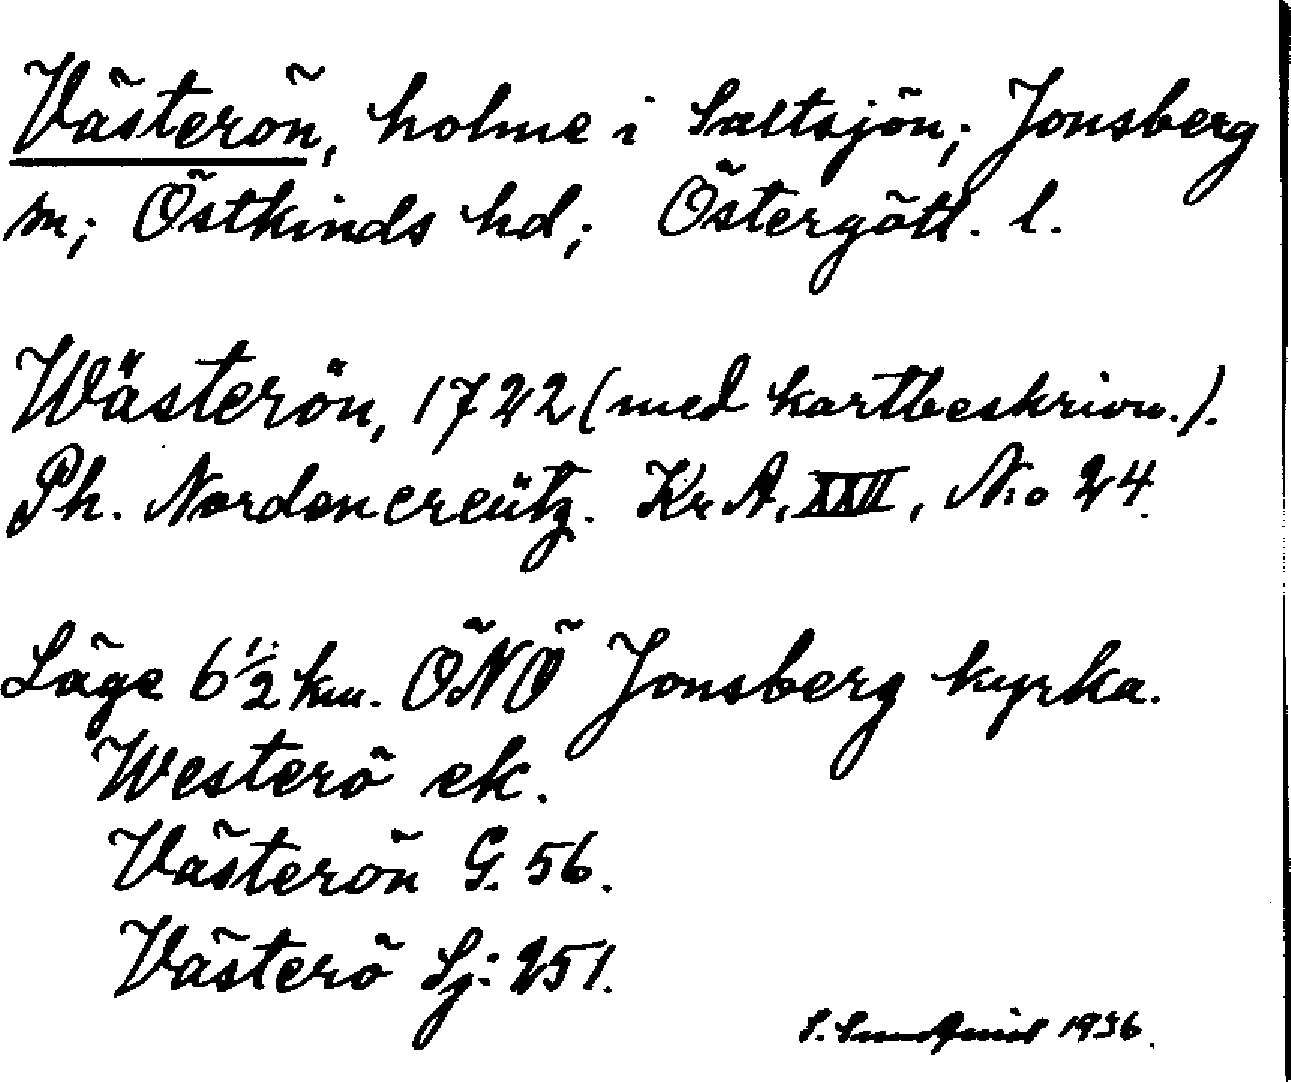 Västerön, holme i Saltsjön; Jonsberg
sn; Östkinds hd; Östergötl. l.
Wästerön, 1722 (med kartbeskrivn.).
Ph. Nordencreütz. Kr A, XXII, No 24.
Läge 6 1/2 km. ÖNÖ Jonsberg kyrka.
Westerö ek.
Västerön G. 56.
Västerö Sj: 251.
S. Sundqvist 1936.